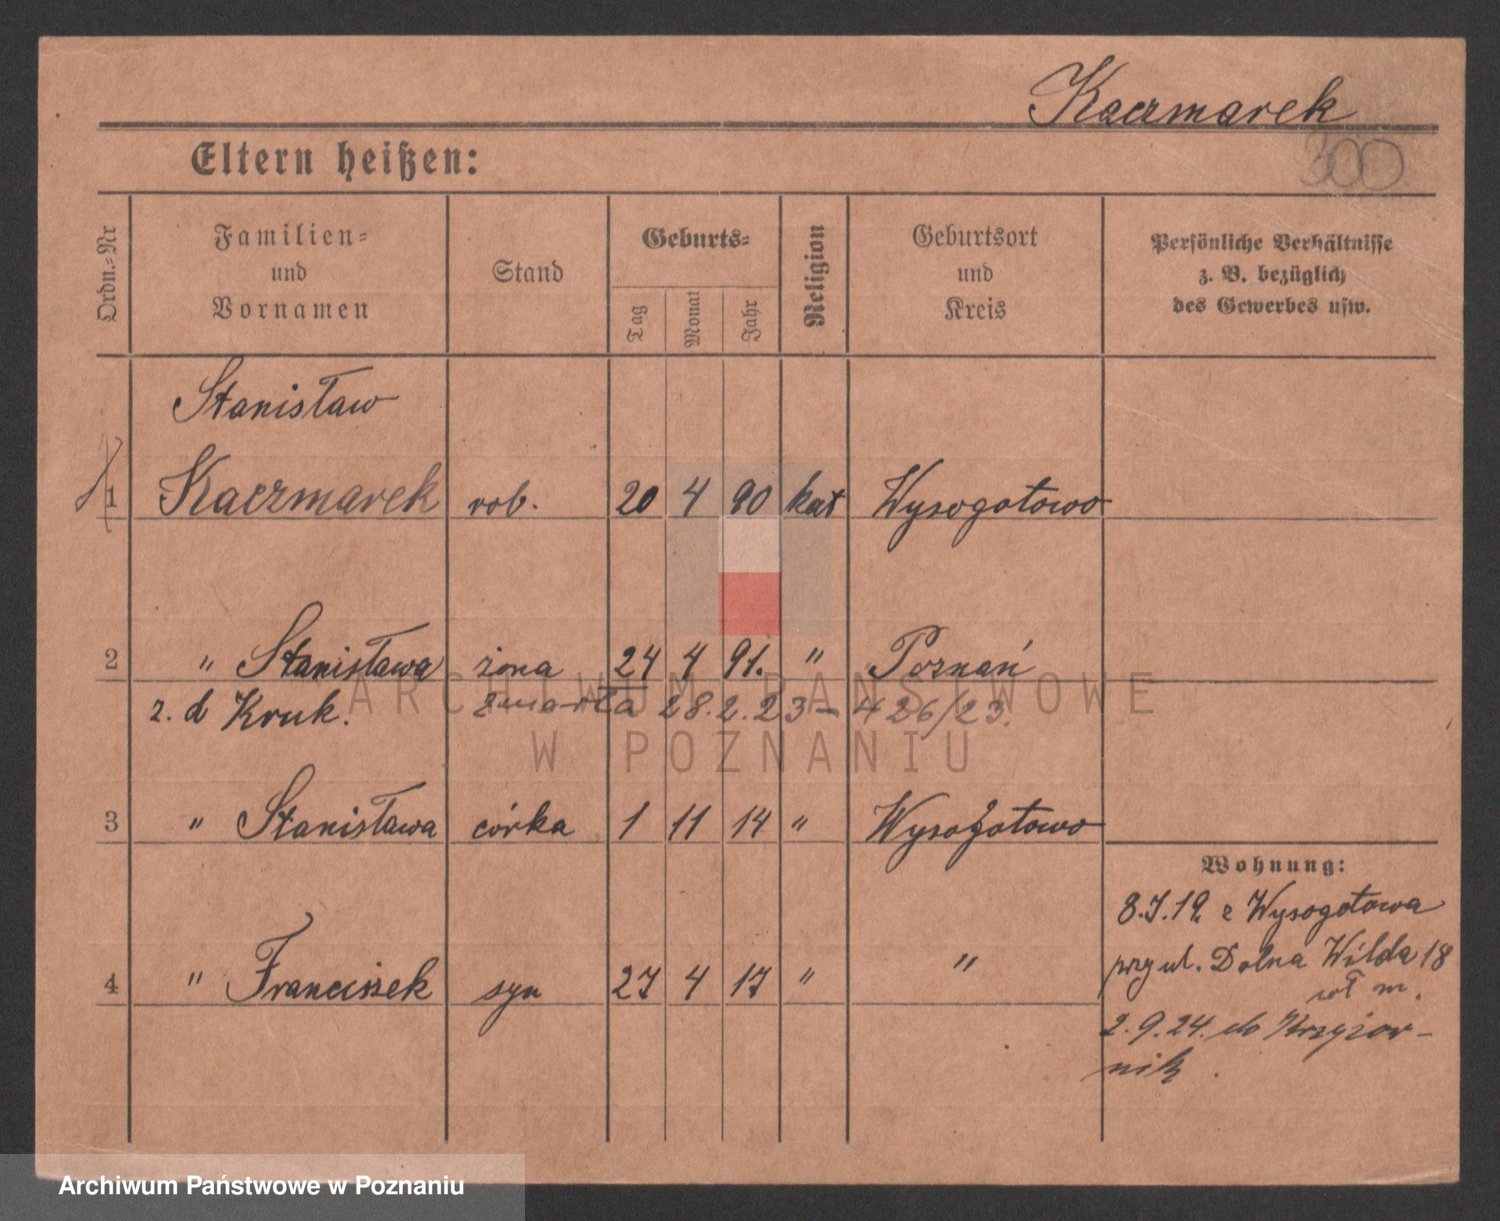 Kaczmarek
300
Eltern heißen:
Ordn.-Nr
Familien-
und
Vornamen
Stand
Geburts-
Tag
Monat
Jahr
Religion
Geburtsort
und
Kreis
Persönliche Verhältnisse
z. B. bezüglich
des Gewerbes usw.
Stanisław
1 Kaczmarek rob. 20 4 90 kat Wysogotowo
2 " Stanisława żona 24 4 91. " Poznań
z. d Kruk. zmarła 28.2.23 – 426/23.
3 " Stanisława córka 1 11 14 " Wysogotowo
Wohnung:
8.I.19. z Wysogotowa
4 " Franciszek syn 27 4 17 " "
przy ul. Dolna Wilda 18
wł m.
2.9.24. do Krzyżow-
nik.
ARCHIWUM PAŃSTWOWE
W POZNANIU
Archiwum Państwowe w Poznaniu